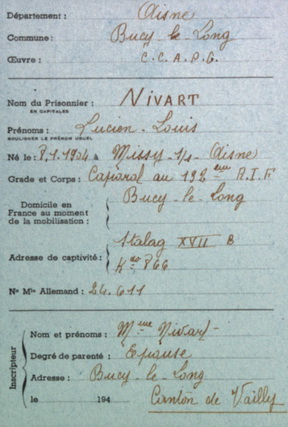 Département : Aisne
Commune : Bucy-le-Long
Œuvre : C.C.A.P.G.
Nom du Prisonnier : NIVART
EN CAPITALES
Prénoms : Lucien-Louis
SOULIGNER LE PRÉNOM USUEL
Né le : 8.1.1904 à Missy-s/-Aisne
Grade et Corps : Caporal au 192ème R.I.F
Domicile en
France au moment
de la mobilisation : Bucy-le-Long
Stalag XVII B
Adresse de captivité : Kdo 866
N° Mle Allemand : 24.611
Inscripteur
Nom et prénoms : Mme Nivart-
Degré de parenté : Epouse
Adresse : Bucy-le-Long
le 194 Canton de Vailly